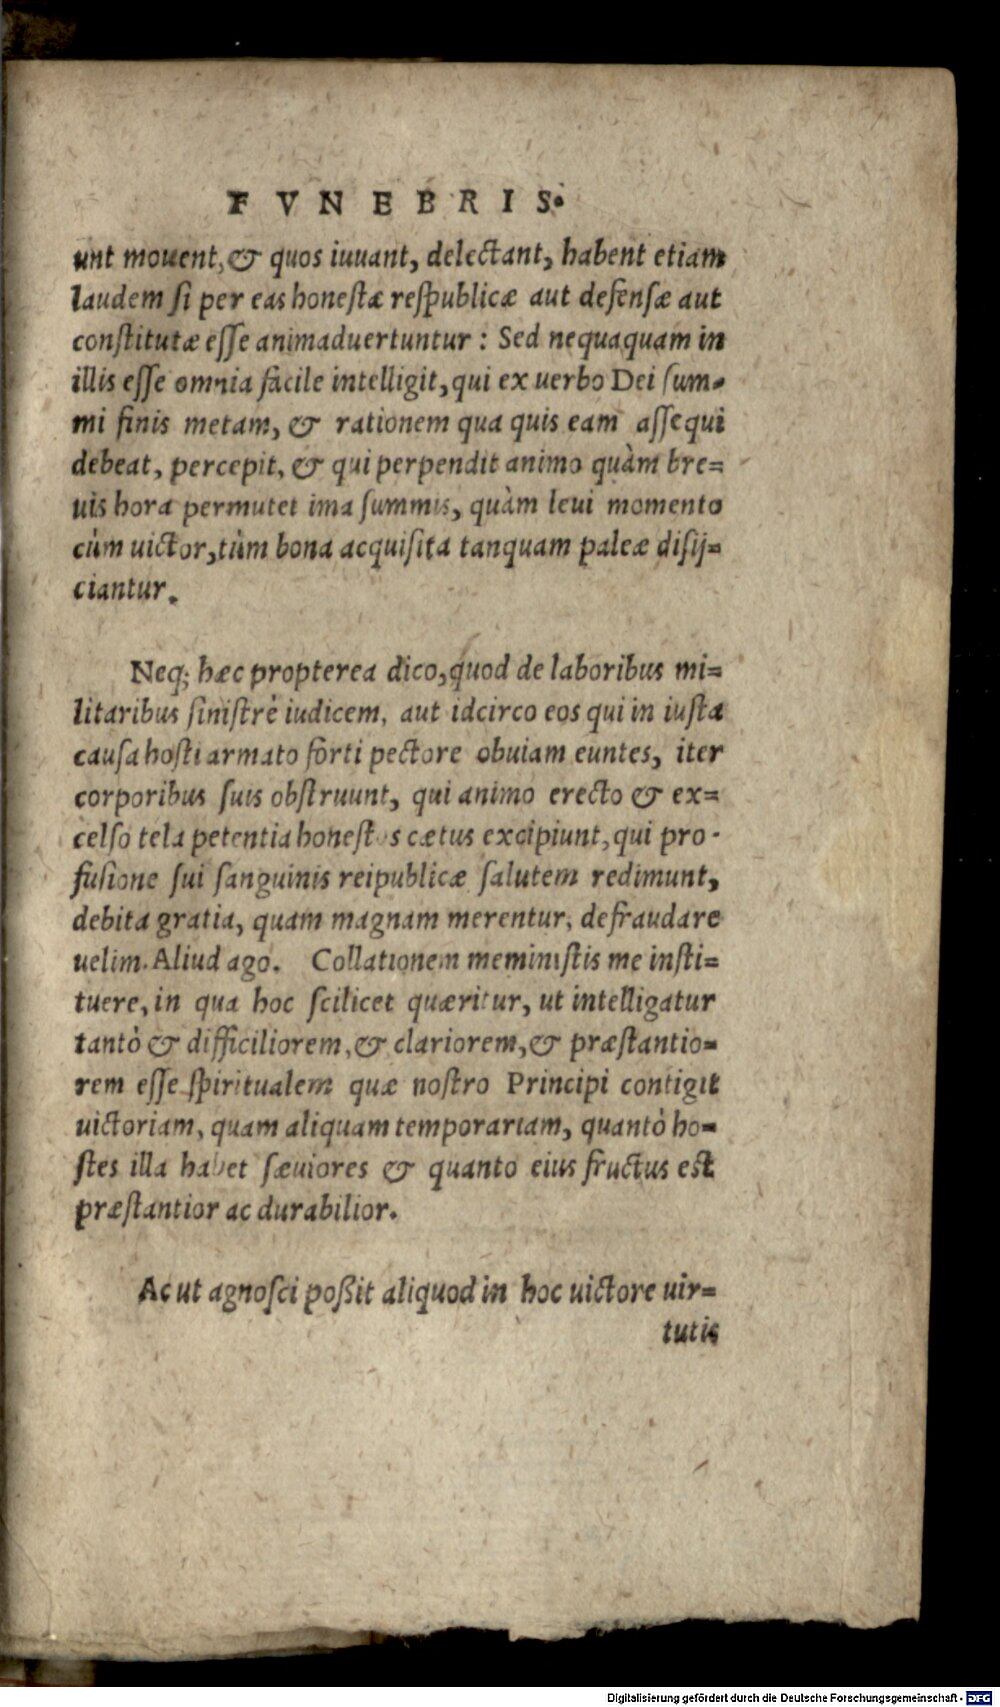 FVNEBRIS.
unt mouent, & quos iuuant, delectant, habent etiam
laudem ſi per eas honeſtæ reſpublicæ aut defenſæ aut
conſtitutæ eſſe animaduertuntur : Sed nequaquam in
illis eſſe omnia facile intelligit, qui ex uerbo Dei ſum-
mi finis metam, & rationem qua quis eam aſſequi
debeat, percepit, & qui perpendit animo quàm bre=
uis hora permutet ima ſummis, quàm leui momento
cùm uictor, tùm bona acquiſita tanquam paleæ diſij=
ciantur.
Neq; hæc propterea dico, quod de laboribus mi=
litaribus ſiniſtrè iudicem, aut idcirco eos qui in iuſta
cauſa hoſti armato forti pectore obuiam euntes, iter
corporibus ſuis obſtruunt, qui animo erecto & ex=
celſo tela petentia honeſtos cætus excipiunt, qui pro-
fuſione ſui ſanguinis reipublicæ ſalutem redimunt,
debita gratia, quam magnam merentur, defraudare
uelim. Aliud ago. Collationem meminiſtis me inſti=
tuere, in qua hoc ſcilicet quæritur, ut intelligatur
tantò & difficiliorem, & clariorem, & præſtantio=
rem eſſe ſpiritualem quæ noſtro Principi contigit
uictoriam, quam aliquam temporariam, quantò ho=
ſtes illa habet ſæuiores & quanto eius fructus eſt
præſtantior ac durabilior.
Ac ut agnoſci poßit aliquod in hoc uictore uir=
tutis
Digitalisierung gefördert durch die Deutsche Forschungsgemeinschaft - DFG